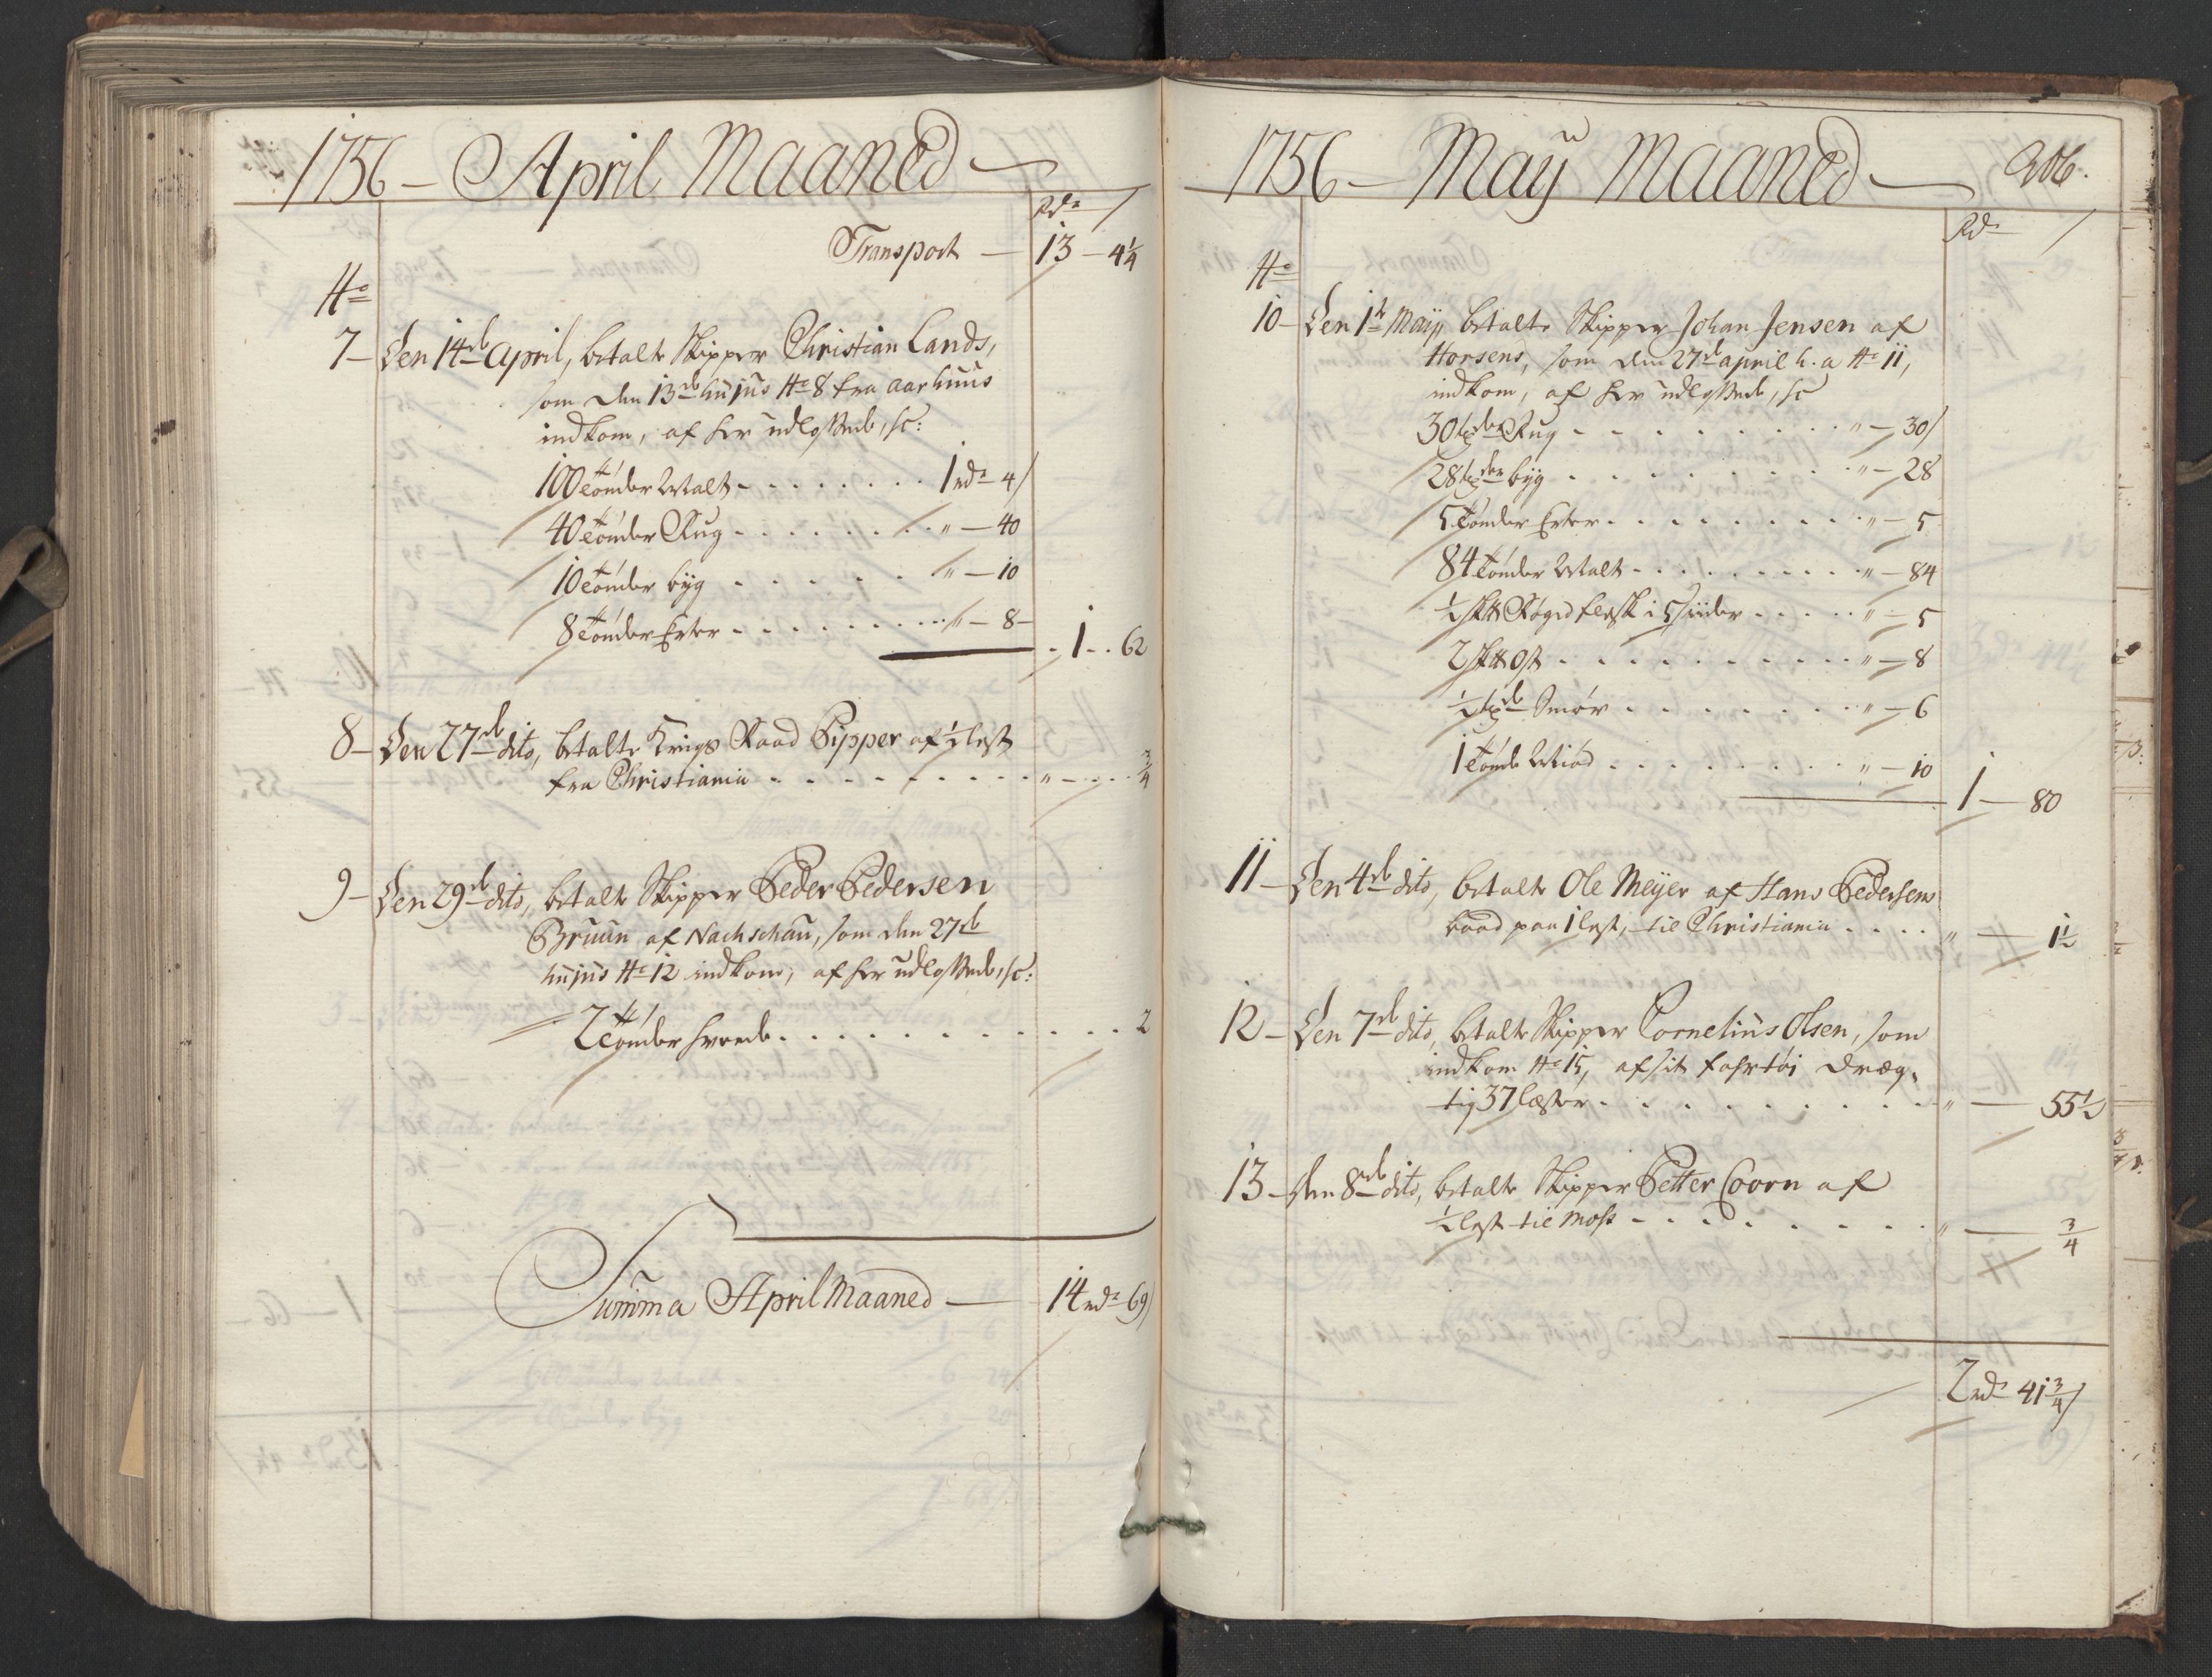 1756 – April Maaned –
Rd. /
Transport – 13 – 4 1/4
No
7 – Den 14de April, betalte Skipper Christian Lands,
som den 13de hujus No 8 fra aarhuus
indkom, af her udlossede, sc:
100 Tønder Malt - - - 1 rd. 4/
40 Tønder Rug - - - " – 40
10 Tønder byg - - - " – 10
8 Tønder Erter - - - " – 8 –
1 - - 62
8 – Den 27de dito, betalte Krigs Raad Pipper af 1/2 lest
fra Christiania - - - " – 3/4
9 – Den 29de dito, betalte Skipper Peder Pedersen
Bruun af Nachschau, som den 27de
hujus No 12 indkom, af her udlossede, sc:
2 Tønder hvede - - - 2
Summa April Maaned – 14 rd. 69/
1756 – Maÿ Maaned –
206.
Rd. /
No
10 – Den 1te Maÿ, betalte Skipper Johan Jensen af
Horsens, som den 27de april h. a No 11,
indkom, af her udlossede, sc
30 tder Rug - - - " – 30/
28 tder byg - - - " – 28
5 Tønder Erter - - - " – 5
84 Tønder Malt - - - " – 84
1/2 sk℔ Røged flesk i 5 siider - - - " – 5
2 sk℔ Ost - - - " – 8
1/2 tde Smør - - - " – 6
1 Tønde Miød - - - " – 10
1 – 80
11 – Den 4de dito, betalte Ole Meÿer af Hans Pedersens
baad paa 1 lest, til Christiania - - - " – 1 1/2
12 – Den 7de dito, betalte Skipper Cornelius Olsen, som
indkom No 15, af sit fahrtøi dræg-
tig 37 læster - - - " – 55 1/2
13 – den 8de dito, betalte Skipper Petter Coorn af
1/2 lest til Moss - - - " – 3/4
2 rd. 41 3/4/